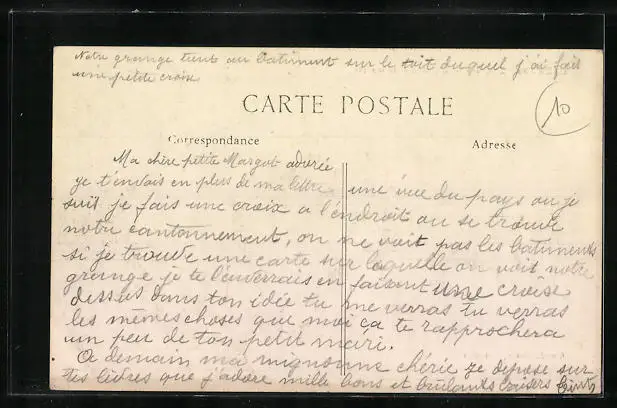 Notre grange tient au batiment sur le toit duquel j'ai fait
une petite croix
10
CARTE POSTALE
Correspondance
Adresse
Ma chère petite Margot adorée
je t'envois en plus de ma lettre une vue du pays ou je
suis je fais une croix a l'endroit ou se trouve
notre cantonnement, on ne voit pas les batiments
si je trouve une carte sur laquelle on voit notre
grange je te l'enverrais en faisant une croise
dessus dans ton idée tu me verras tu verras
les mêmes choses que moi ça te rapprochera
un peu de ton petit mari.
A demain ma mignonne chérie je depose sur
tes lèvres que j'adore mille bons et brulants baisers